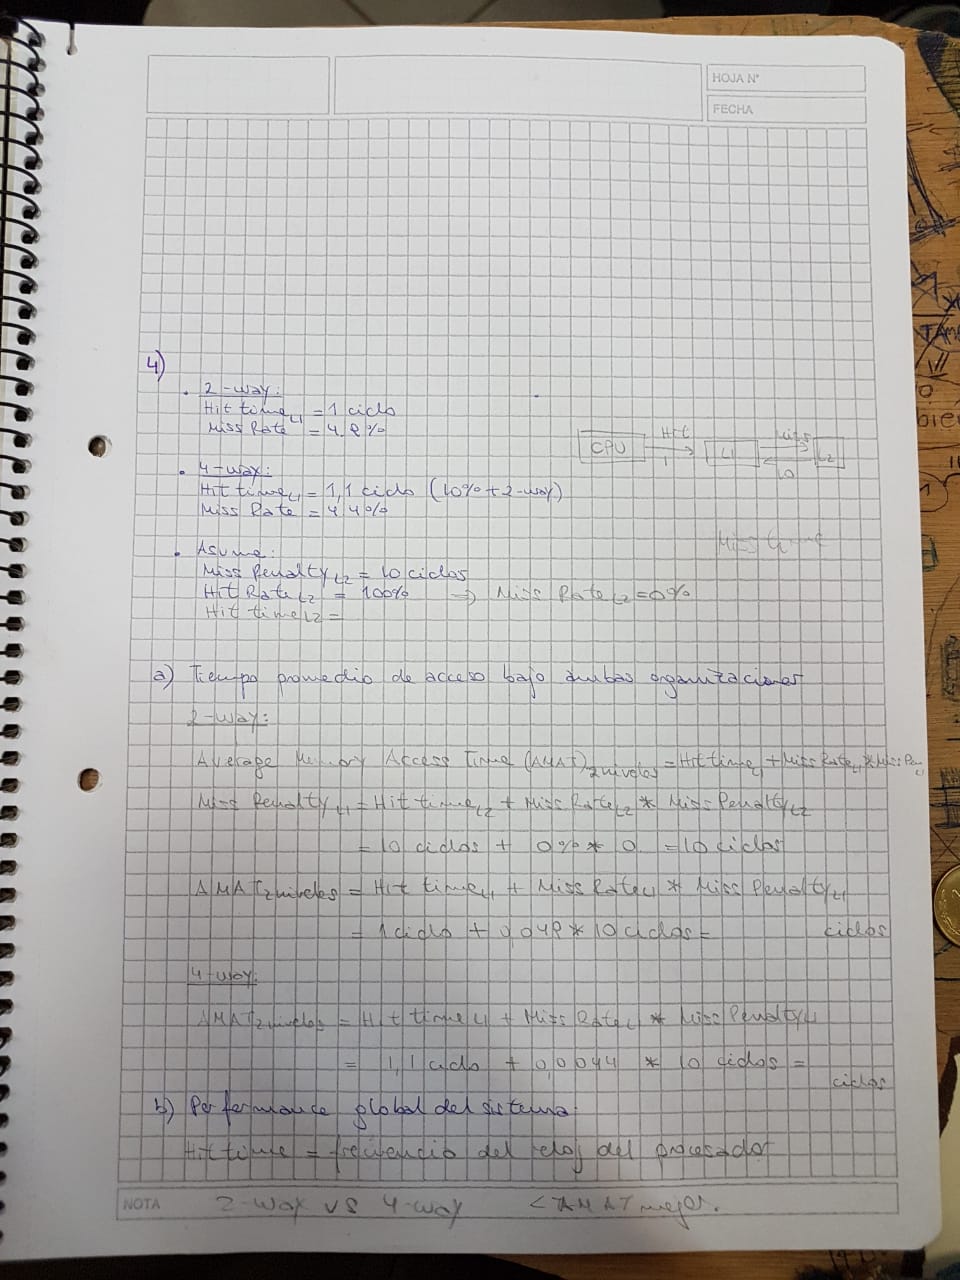 HOJA Nº
FECHA
4)
· 2-way:
Hit time L1 = 1 ciclo
Miss Rate = 4,8%
· 4-way:
Hit time L1 = 1,1 ciclo (10% + 2-way)
Miss Rate = 4,4%
CPU Hit 1 L1 Miss 10 L2
· Asume:
Miss Penalty L2 = 10 ciclos
Hit Rate L2 = 100% → Miss Rate L2 = 0%
Hit time L2 =
a) Tiempo promedio de acceso bajo ambas organizaciones
2-way:
Average Memory Access Time (AMAT) 2niveles = Hit time L1 + Miss Rate L1 * Miss Pen L1
Miss Penalty L1 = Hit time L2 + Miss Rate L2 * Miss Penalty L2
= 10 ciclos + 0% * 0 = 10 ciclos
AMAT 2niveles = Hit time L1 + Miss Rate L1 * Miss Penalty L1
= 1 ciclo + 0,048 * 10 ciclos = ciclos
4-way:
AMAT 2niveles = Hit time L1 + Miss Rate L1 * Miss Penalty L1
= 1,1 ciclo + 0,0044 * 10 ciclos = ciclos
b) Performance global del sistema:
Hit time = frecuencia del reloj del procesador
NOTA 2-way vs 4-way < AMAT mejor.